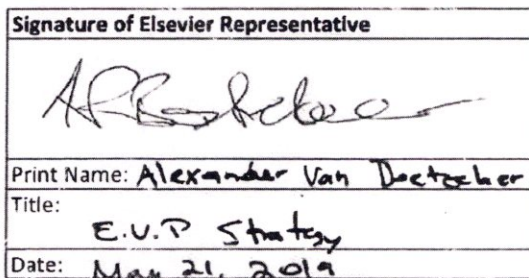 Signature of Elsevier Representative
Print Name: Alexander Van
Title:
E.V.P Strategy
Date: May 21, 2019